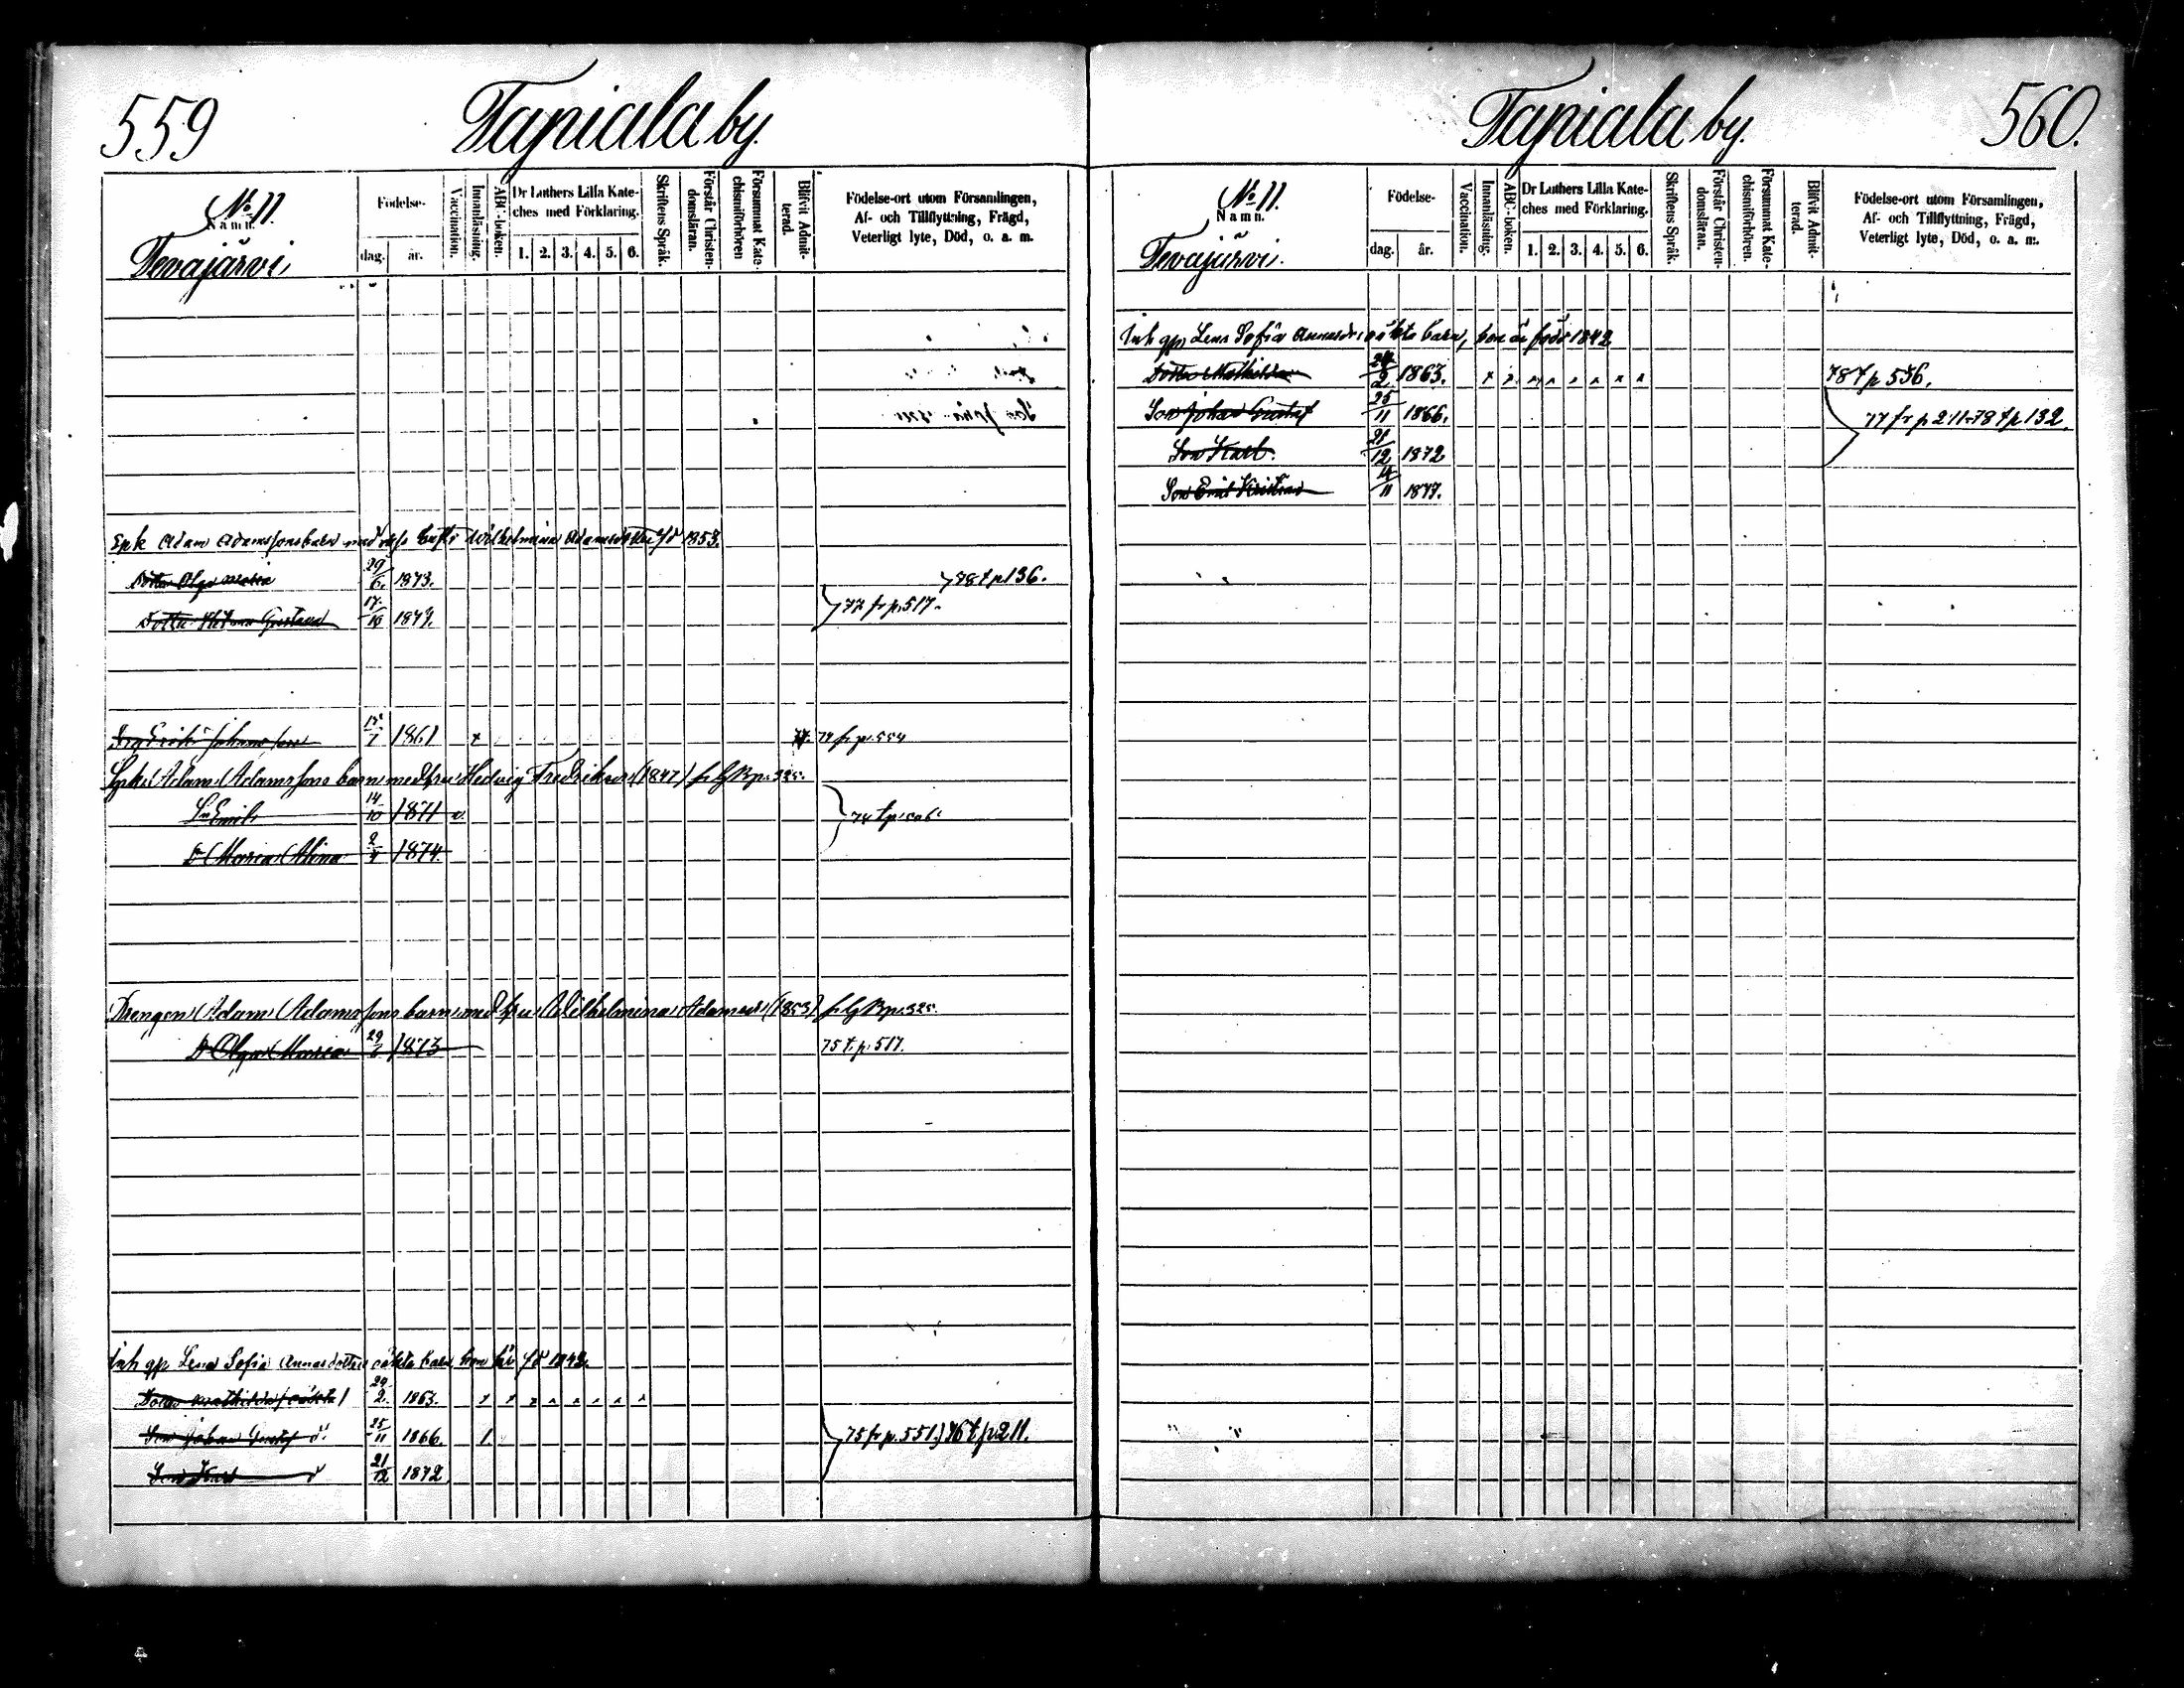 559 Tapiala by.
No 11.
Namn.
Tevajärvi
Födelse-
dag. år.
Vaccination.
Innanläsning.
ABC-boken.
Dr Luthers Lilla Kate-
ches med Förklaring.
1. 2. 3. 4. 5. 6.
Skriftens Språk.
Förstår Christen-
domsläran.
Försummat Kate-
chismiförhören
Blifvit Admit-
terad.
Födelse-ort utom Församlingen,
Af- och Tillflyttning, Frägd,
Veterligt lyte, Död, o. a. m.
Adam Adamssons barn med Wilhelmina Adamsdotter fd 1853.
Dotter Olga Maria 29/6. 1873. 78 t p 136.
77 fr p. 517.
Dotter Gustava 17/10
Johansson 1861 x fr p. 554
Adam Adamssons barn med hru Hedvig Fredriksd (1847) fr G B p. 325.
Sn Emil 14/10 1871 v
D Maria Alina 2/4 1874.
Drengen Adam Adamssons barn med hru Wilhelmina Adamsd (1853) fr G B p. 325.
D Olga Maria 29/6 1873 75 t. p. 517.
Inh qp Lena Sofia Annasdotters oäkta barn hon är fd 1842.
Dotter Mathilda 2. 1863. x x x x x x x x
Son Johan Gustaf d: 25/11 1866. 1. 75 fr p. 551.) 76 t p 211.
Son Karl d 21/12 1872
Tapiala by. 560.
No 11.
Namn.
Tevajärvi.
Födelse-
dag. år.
Vaccination.
Innanläsning.
ABC-boken.
Dr Luthers Lilla Kate-
ches med Förklaring.
1. 2. 3. 4. 5. 6.
Skriftens Språk.
Förstår Christen-
domsläran.
Försummat Kate-
chismiförhören.
Blifvit Admit-
terad.
Födelse-ort utom Församlingen,
Af- och Tillflyttning, Frägd,
Veterligt lyte, Död, o. a. m.
Inh qp Lena Sofia Annasdr oäkta barn, hon är född 1842
Dotter Mathilda 2 1863. x x x x x x x x
Son Johan Gustaf 25/11 1866. 77 fr p 211. 78 t p 132.
Son Karl. 21/12 1872
Son Emil Kristian 11 1877.